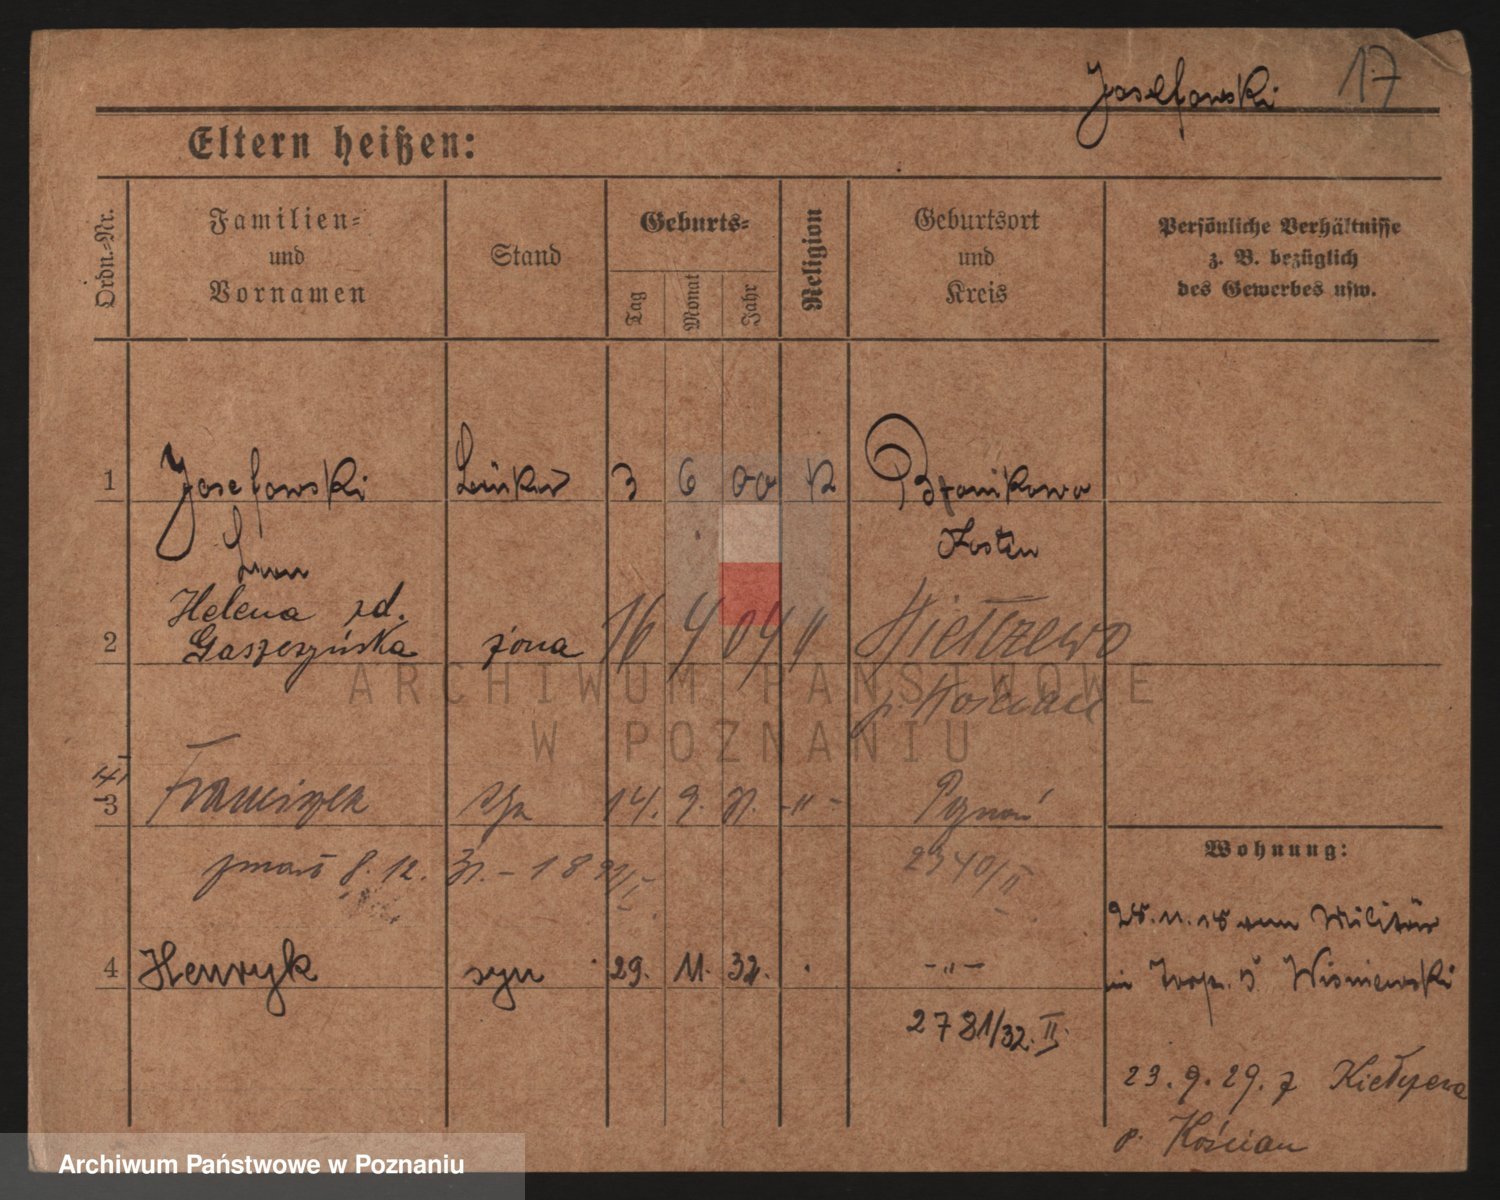 Josefowski 17
Eltern heißen:
Ordn.-Nr.
Familien-
und
Vornamen
Stand
Geburts-
Tag
Monat
Jahr
Religion
Geburtsort
und
Kreis
Persönliche Verhältnisse
z. B. bezüglich
des Gewerbes usw.
1 Josefowski 3 6 00 K
Kosten
Helena zd.
2 Gaszczyńska żona 16 4 04 "
p. Kościan
3 Franciszek syn 14. 9. 31. -"- Poznań
zmarł 8. 12. 31. - 2340/II
Wohnung:
4 Henryk syn 29. 11. 32. -"-
2781/32. II
Militär
in Wisniewski
23. 9. 29. z Kiełczewa
p. Kościan
ARCHIWUM PAŃSTWOWE
W POZNANIU
Archiwum Państwowe w Poznaniu